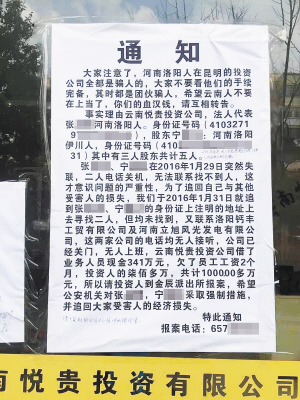 通 知
大家注意了，河南洛阳人在昆明的投资
公司全部是骗人的，大家不要看他们的手续
完备，其时都是团伙骗人，希望云南人不要
在上当了，你们的血汉钱，请互相转告。
事实理由是云南悦贵投资公司，法人代表
张 河南洛阳人。身份证号码（4103271
9 ），股东宁 ：河南洛阳
伊川人，身份证号码（410
31）其时有三人股东共计五人。
张 、宁 在2016年1月29日突然失
联，二人电话关机，无法联系找不到人，这
才意识问题的严重性，为了追回自己与其他
受害人的损失，我们于2016年1月31日就追到
张 、宁 的身份证上注明的地址上
去寻找二人，但均未找到，又联系洛阳钙丰
工贸有限公司及河南立旭风光发电有限公
司，这两家公司的电话均无人接听，公司已
经关门，无人上班，云南悦贵投资公司借了
业务人员现金341万元，欠了员工工资2个
月，投资人的柒佰多万，共计1000.00多万
元，所以请投资人到金辰派出所报案，希望
公安机关对张 、宁 采取强制措施，
并追回大家受害人的经济损失。
特此通知
报案电话：657
南悦贵投资有限公司